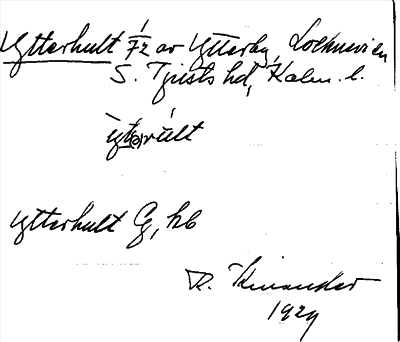 Ytterhult 1/72 av Ytterby, Locknevi sn
S. Tjusts hd, Kalm. l.
Ytterhult G, hb
R. Kinander
1929